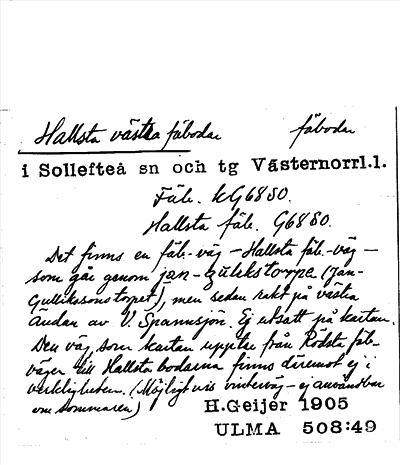 Hallsta västra fäbodar fäbodar
i Sollefteå sn och tg Västernorrl.l.
Fäb. KG6850.
Hallsta fäb. G6850.
Det finns en fäb-väg – Hallsta fäb-väg –
som går genom jan-gulekstorpe (Jan-
Gullikssonstorpet), men sedan rakt på västra
ändan av V. Spannsjön. Ej utsatt på kartan.
Den väg, som kartan upptar från Rödsta fäb-
vägen till Hallstabodarna finns däremot ej i
verkligheten. (Möjligtvis vinterväg – ej användbar
om sommaren)
H.Geijer 1905
ULMA 508:49